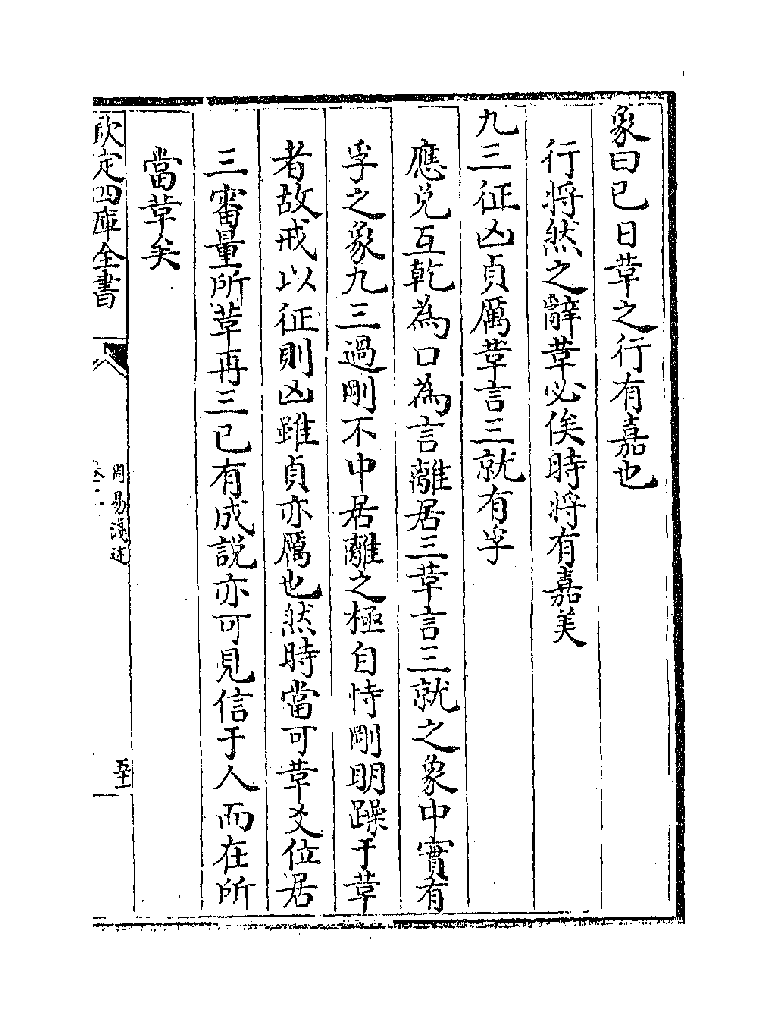 象曰已日革之行有嘉也
行將然之辭革必俟時將有嘉美
九三征凶貞厲革言三就有孚
應兌互乾為口為言離居三革言三就之象中實有
孚之象九三過剛不中居離之極自恃剛明躁于革
者故戒以征則凶雖貞亦厲也然時當可革爻位居
三審量所革再三已有成說亦可見信于人而在所
當革矣
欽定四庫全書
周易淺述
卷二
五十一